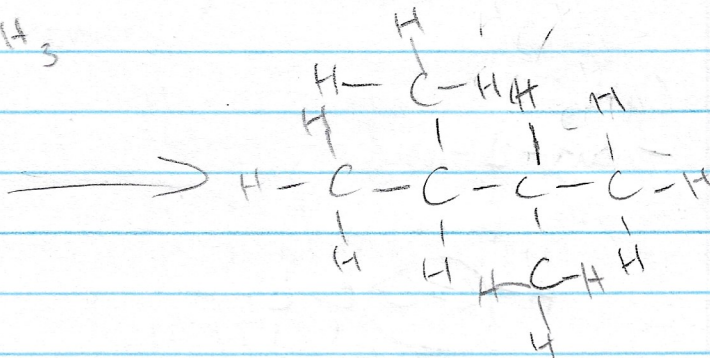 H
H3
H - C - H H H
H
H - C - C - C - C - H
H H H - C - H H
H